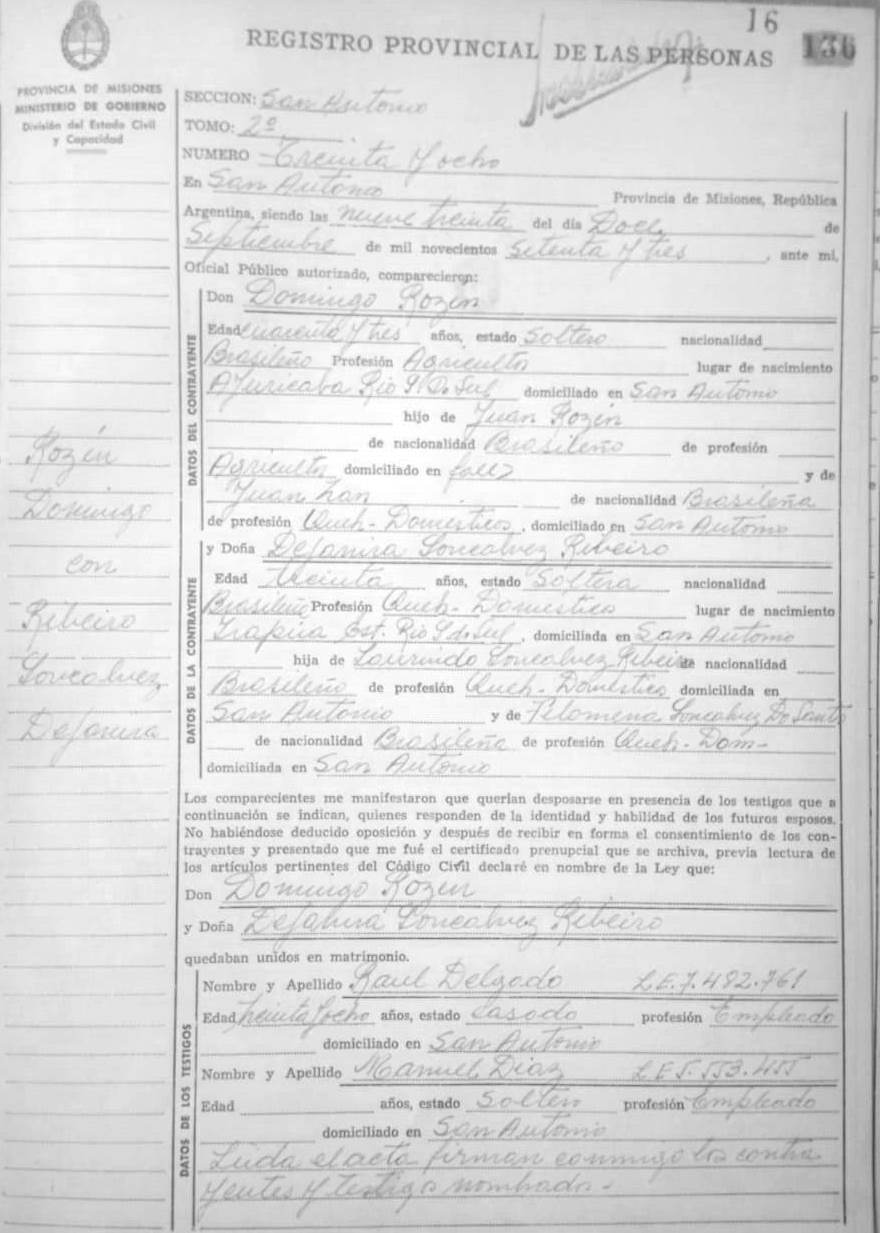 16
136
REGISTRO PROVINCIAL DE LAS PERSONAS
PROVINCIA DE MISIONES
MINISTERIO DE GOBIERNO
División del Estado Civil
y Capacidad
SECCION: San Antonio
TOMO: 2º
NUMERO Treinta y ocho
En San Antonio Provincia de Misiones, República
Argentina, siendo las nueve treinta del día Doce de
Septiembre de mil novecientos Setenta y tres, ante mí,
Oficial Público autorizado, comparecieron:
DATOS DEL CONTRAYENTE
Don Domingo Rozen
Edad cuarenta y tres años, estado Soltero nacionalidad
Brasileño Profesión Agricultor lugar de nacimiento
Ajuricaba Rio G. Do Sul domiciliado en San Antonio
hijo de Juan Rozen
de nacionalidad Brasileño de profesión
Agricultor domiciliado en y de
Juan de nacionalidad Brasileña
de profesión Queh-Domesticos, domiciliado en San Antonio
Rozen
Domingo
con
Ribeiro
Goncalvez
Dejanira
DATOS DE LA CONTRAYENTE
y Doña Dejanira Goncalvez Ribeiro
Edad treinta años, estado Soltera nacionalidad
Brasileño Profesión Queh-Domestico lugar de nacimiento
Irapua Est. Rio G do Sul, domiciliada en San Antonio
hija de Laurindo Goncalvez Ribeiro de nacionalidad
Brasileño de profesión Queh-Domestico domiciliada en
San Antonio y de Filomena Goncalvez Do Santo
de nacionalidad Brasileña de profesión Queh-Dom-
domiciliada en San Antonio
Los comparecientes me manifestaron que querían desposarse en presencia de los testigos que a
continuación se indican, quienes responden de la identidad y habilidad de los futuros esposos.
No habiéndose deducido oposición y después de recibir en forma el consentimiento de los con-
trayentes y presentado que me fué el certificado prenupcial que se archiva, previa lectura de
los artículos pertinentes del Código Civil declaré en nombre de la Ley que:
Don Domingo Rozen
y Doña Dejanira Goncalvez Ribeiro
quedaban unidos en matrimonio.
DATOS DE LOS TESTIGOS
Nombre y Apellido Raul Delgado L.E.7.482.761
Edad treinta y ocho años, estado casado profesión Empleado
domiciliado en San Antonio
Nombre y Apellido Manuel Diaz L.E.5.553.455
Edad años, estado Soltero profesión Empleado
domiciliado en San Antonio
Leida el acta firman conmigo los contra
yentes y testigos nombrados-